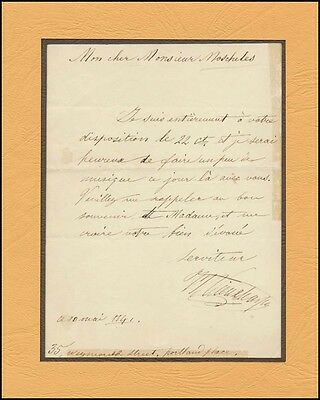 Mon cher Monsieur Moscheles
Je suis entièrement à votre
disposition le 22 ct. et je serai
heureux de faire un peu de
musique ce jour là avec vous.
Veuillez me rappeler au bon
souvenir de Madame, et me
croire votre bien dévoué
serviteur
H Vieuxtemps
ce 10 mai 1841.
35 Weymouth street, portland place.